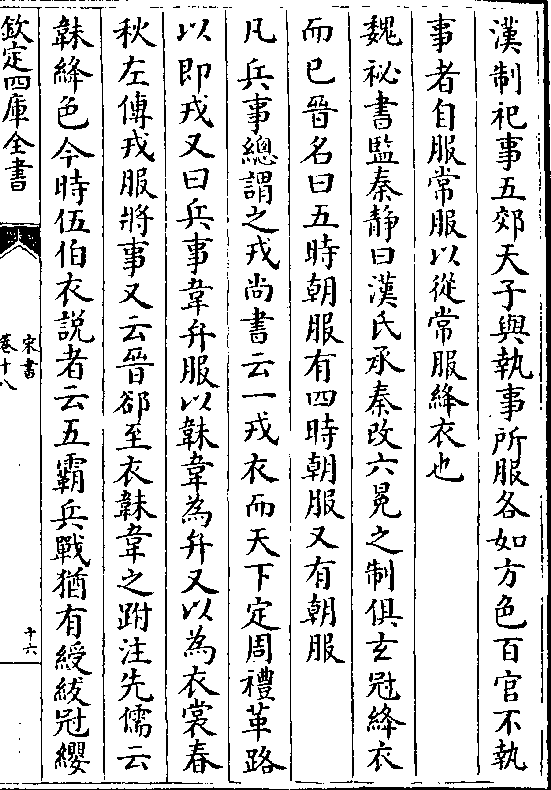 漢制祀事五郊天子與執事所服各如方色百官不執
事者自服常服以從常服絳衣也
魏祕書監秦静曰漢氏承秦改六冕之制俱玄冠絳衣
而已晉名曰五時朝服有四時朝服又有朝服
凡兵事總謂之戎尚書云一戎衣而天下定周禮革路
以即戎又曰兵事韋弁服以韎韋為弁又以為衣裳春
秋左傳戎服將事又云晉郤至衣韎韋之跗注先儒云
韎絳色今時伍伯衣説者云五霸兵戰猶有綬紱冠纓
欽定四庫全書
宋書
卷十八
十六